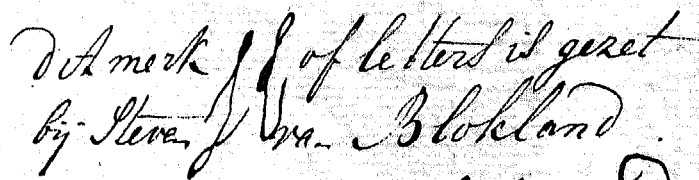 dit merk of letters is gezet
bij Steven van Blokland.